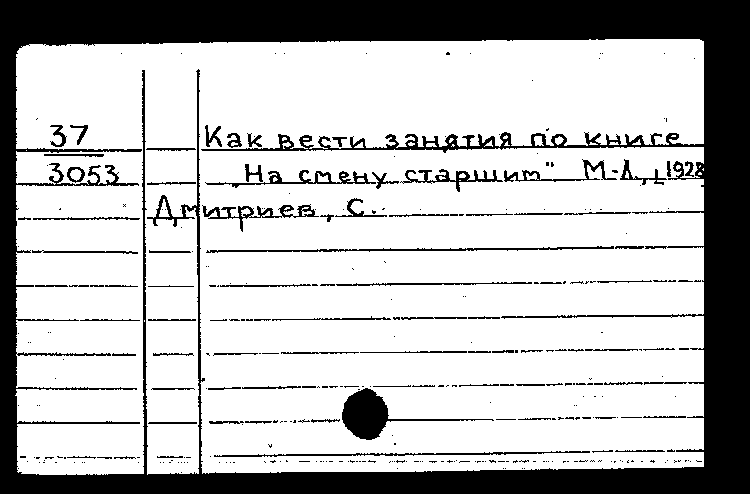 37
3053
Как вести занятия по книге
„На смену старшим" М-Л., [1928]
Дмитриев, С.